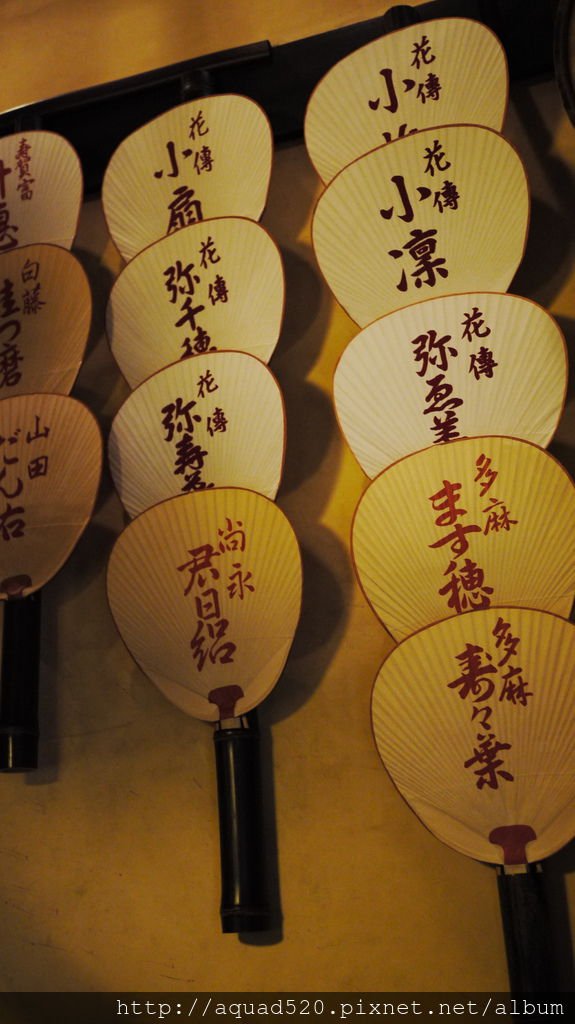 花傳
小
花傳
小凜
花傳
弥ゑ
多麻
ます穂
多麻
寿々葉
花傳
小扇
花傳
弥千穂
花傳
弥寿
尚永
君日紹
寿賀富
白藤
山田
http://aquad520.pixnet.net/album